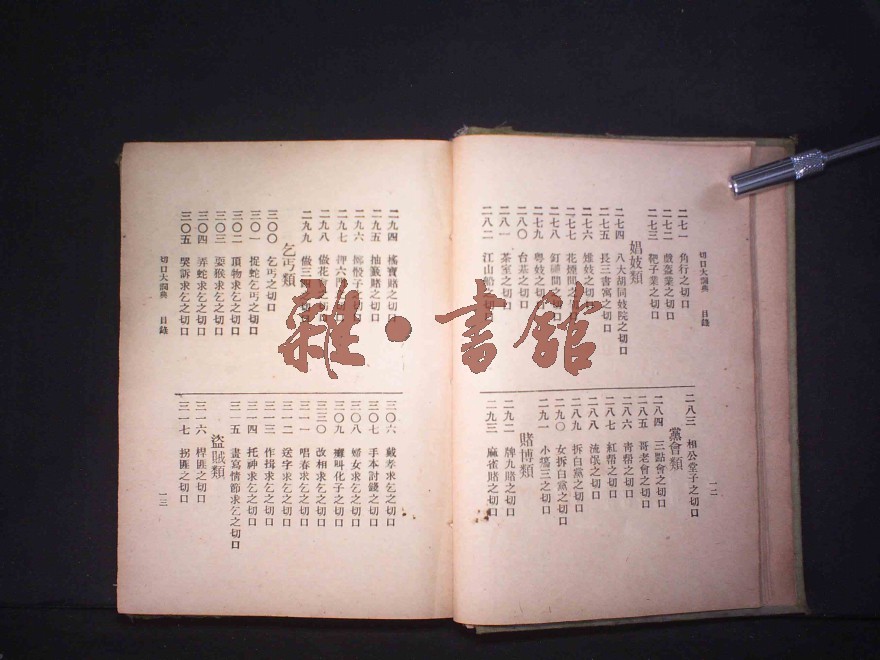 切口大詞典 目錄
一二
二七一 角行之切口
二七二 戲蠱業之切口
二七三 靶子業之切口
娼妓類
二七四 八大胡同妓院之切口
二七五 長三書寓之切口
二七六 雉妓之切口
二七七 花煙間之切口
二七八 釘棚間之切口
二七九 粵妓之切口
二八〇 台基之切口
二八一 茶室之切口
二八二 江山船之切口
二八三 相公堂子之切口
黨會類
二八四 三點會之切口
二八五 哥老會之切口
二八六 靑幇之切口
二八七 紅幇之切口
二八八 流氓之切口
二八九 拆白黨之切口
二九〇 女拆白黨之切口
二九一 小癟三之切口
賭博類
二九二 牌九賭之切口
二九三 麻雀賭之切口
二九四 搖寶賭之切口
二九五 抽籤賭之切口
二九六 擲骰子之切口
二九七 押六門之切口
二九八 做花會之切口
二九九 做三之切口
乞丐類
三〇〇 乞丐之切口
三〇一 捉蛇乞丐之切口
三〇二 頂物求乞之切口
三〇三 耍猴求乞之切口
三〇四 弄蛇求乞之切口
三〇五 哭訴求乞之切口
三〇六 戴孝求乞之切口
三〇七 手本討錢之切口
三〇八 婦女求乞之切口
三〇九 叫化子之切口
三三〇 改相求乞之切口
三一一 唱春求乞之切口
三一二 送字求乞之切口
三一三 作揖求乞之切口
三一四 托神求乞之切口
三一五 書寫情節求乞之切口
盜賊類
三一六 桿匪之切口
三一七 拐匪之切口
切口大詞典 目錄
一三
雜·書館